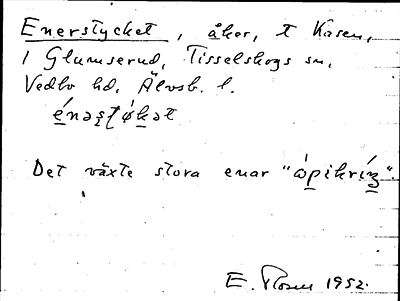 Enerstycket, åker, t Kåsen,
1 Glumserud, Tisselskogs sn,
Vedbo hd, Älvsb. l.
Det växte stora enar "
E. Rosell 1952.